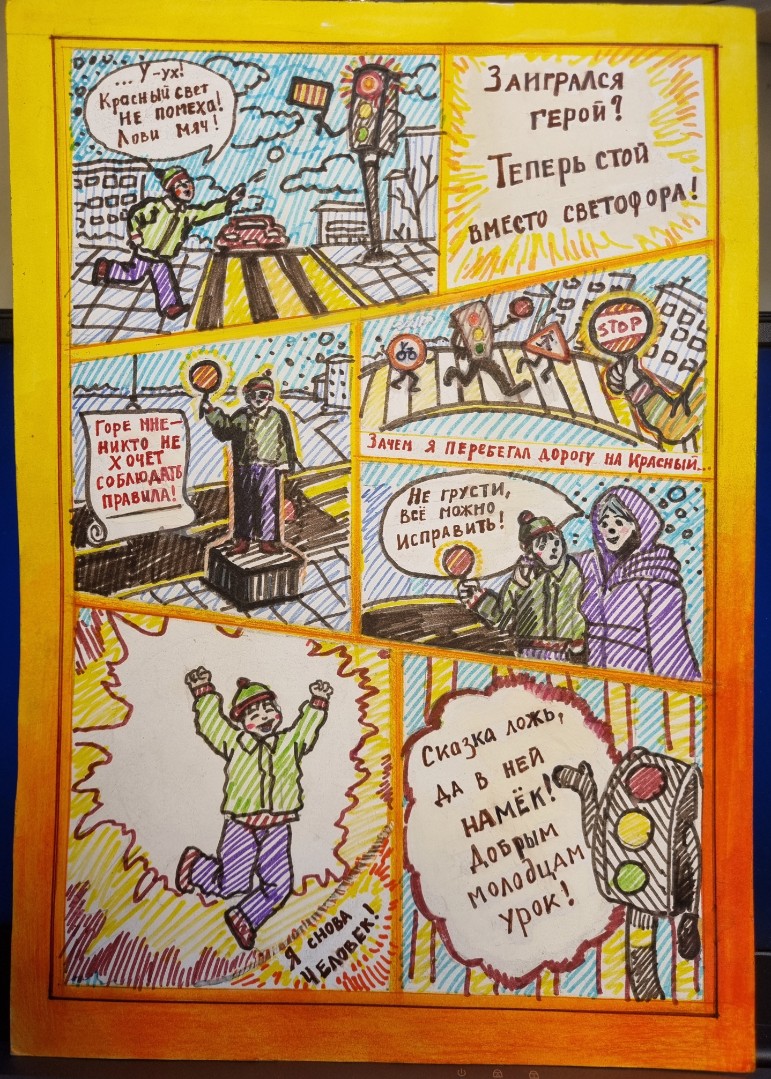 ...У-ух!
Красный свет
не помеха!
Лови мяч!
Заигрался
герой?
Теперь стой
вместо светофора!
STOP
Зачем я перебегал дорогу на красный...
Горе мне-
никто не
хочет
соблюдать
правила!
Не грусти,
всё можно
исправить!
Я снова
человек!
Сказка ложь,
да в ней
намёк!
Добрым
молодцам
урок!